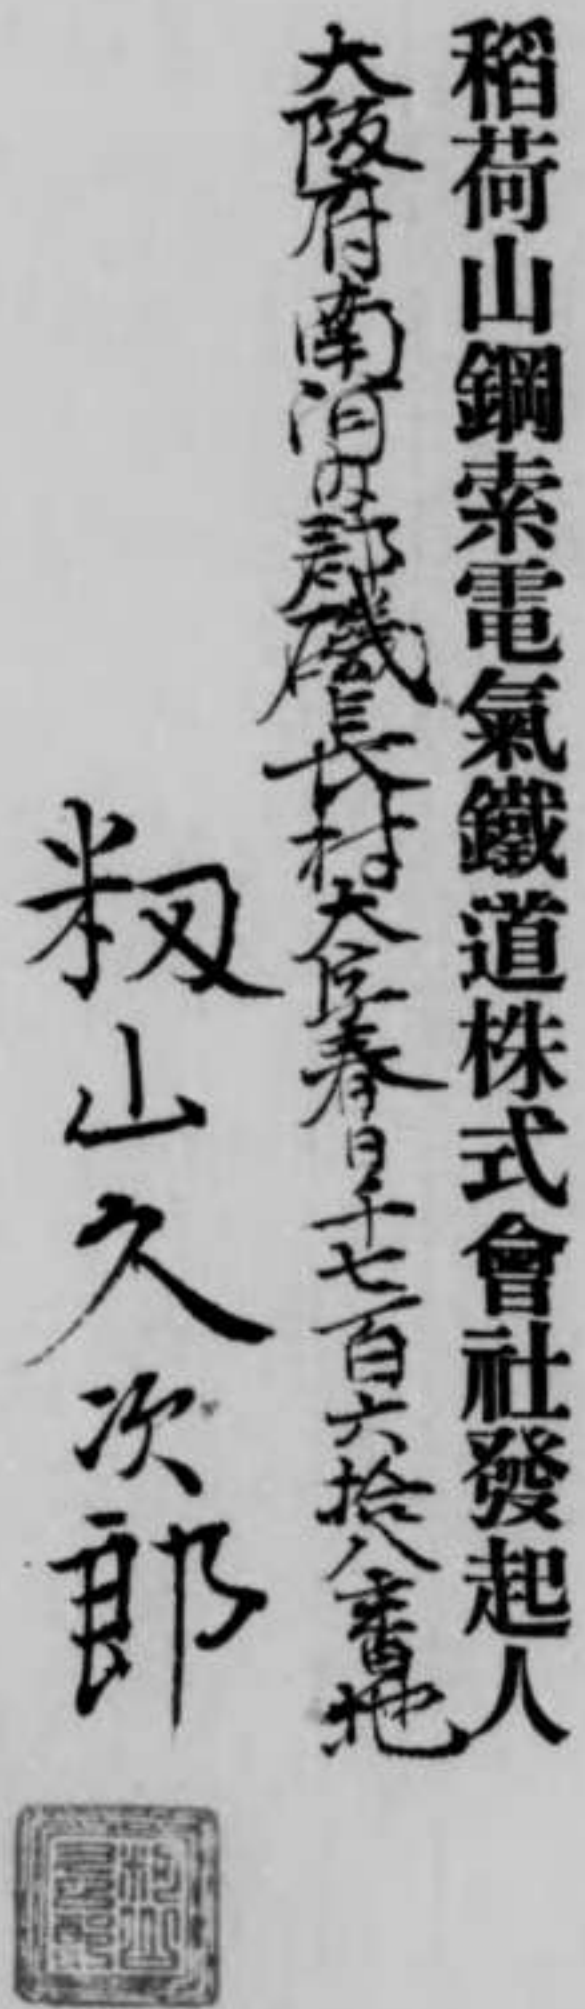 稻荷山鋼索電氣鐵道株式會社發起人
大阪府南河内郡磯長村大字春日千七百六拾八番地
籾山久次郎